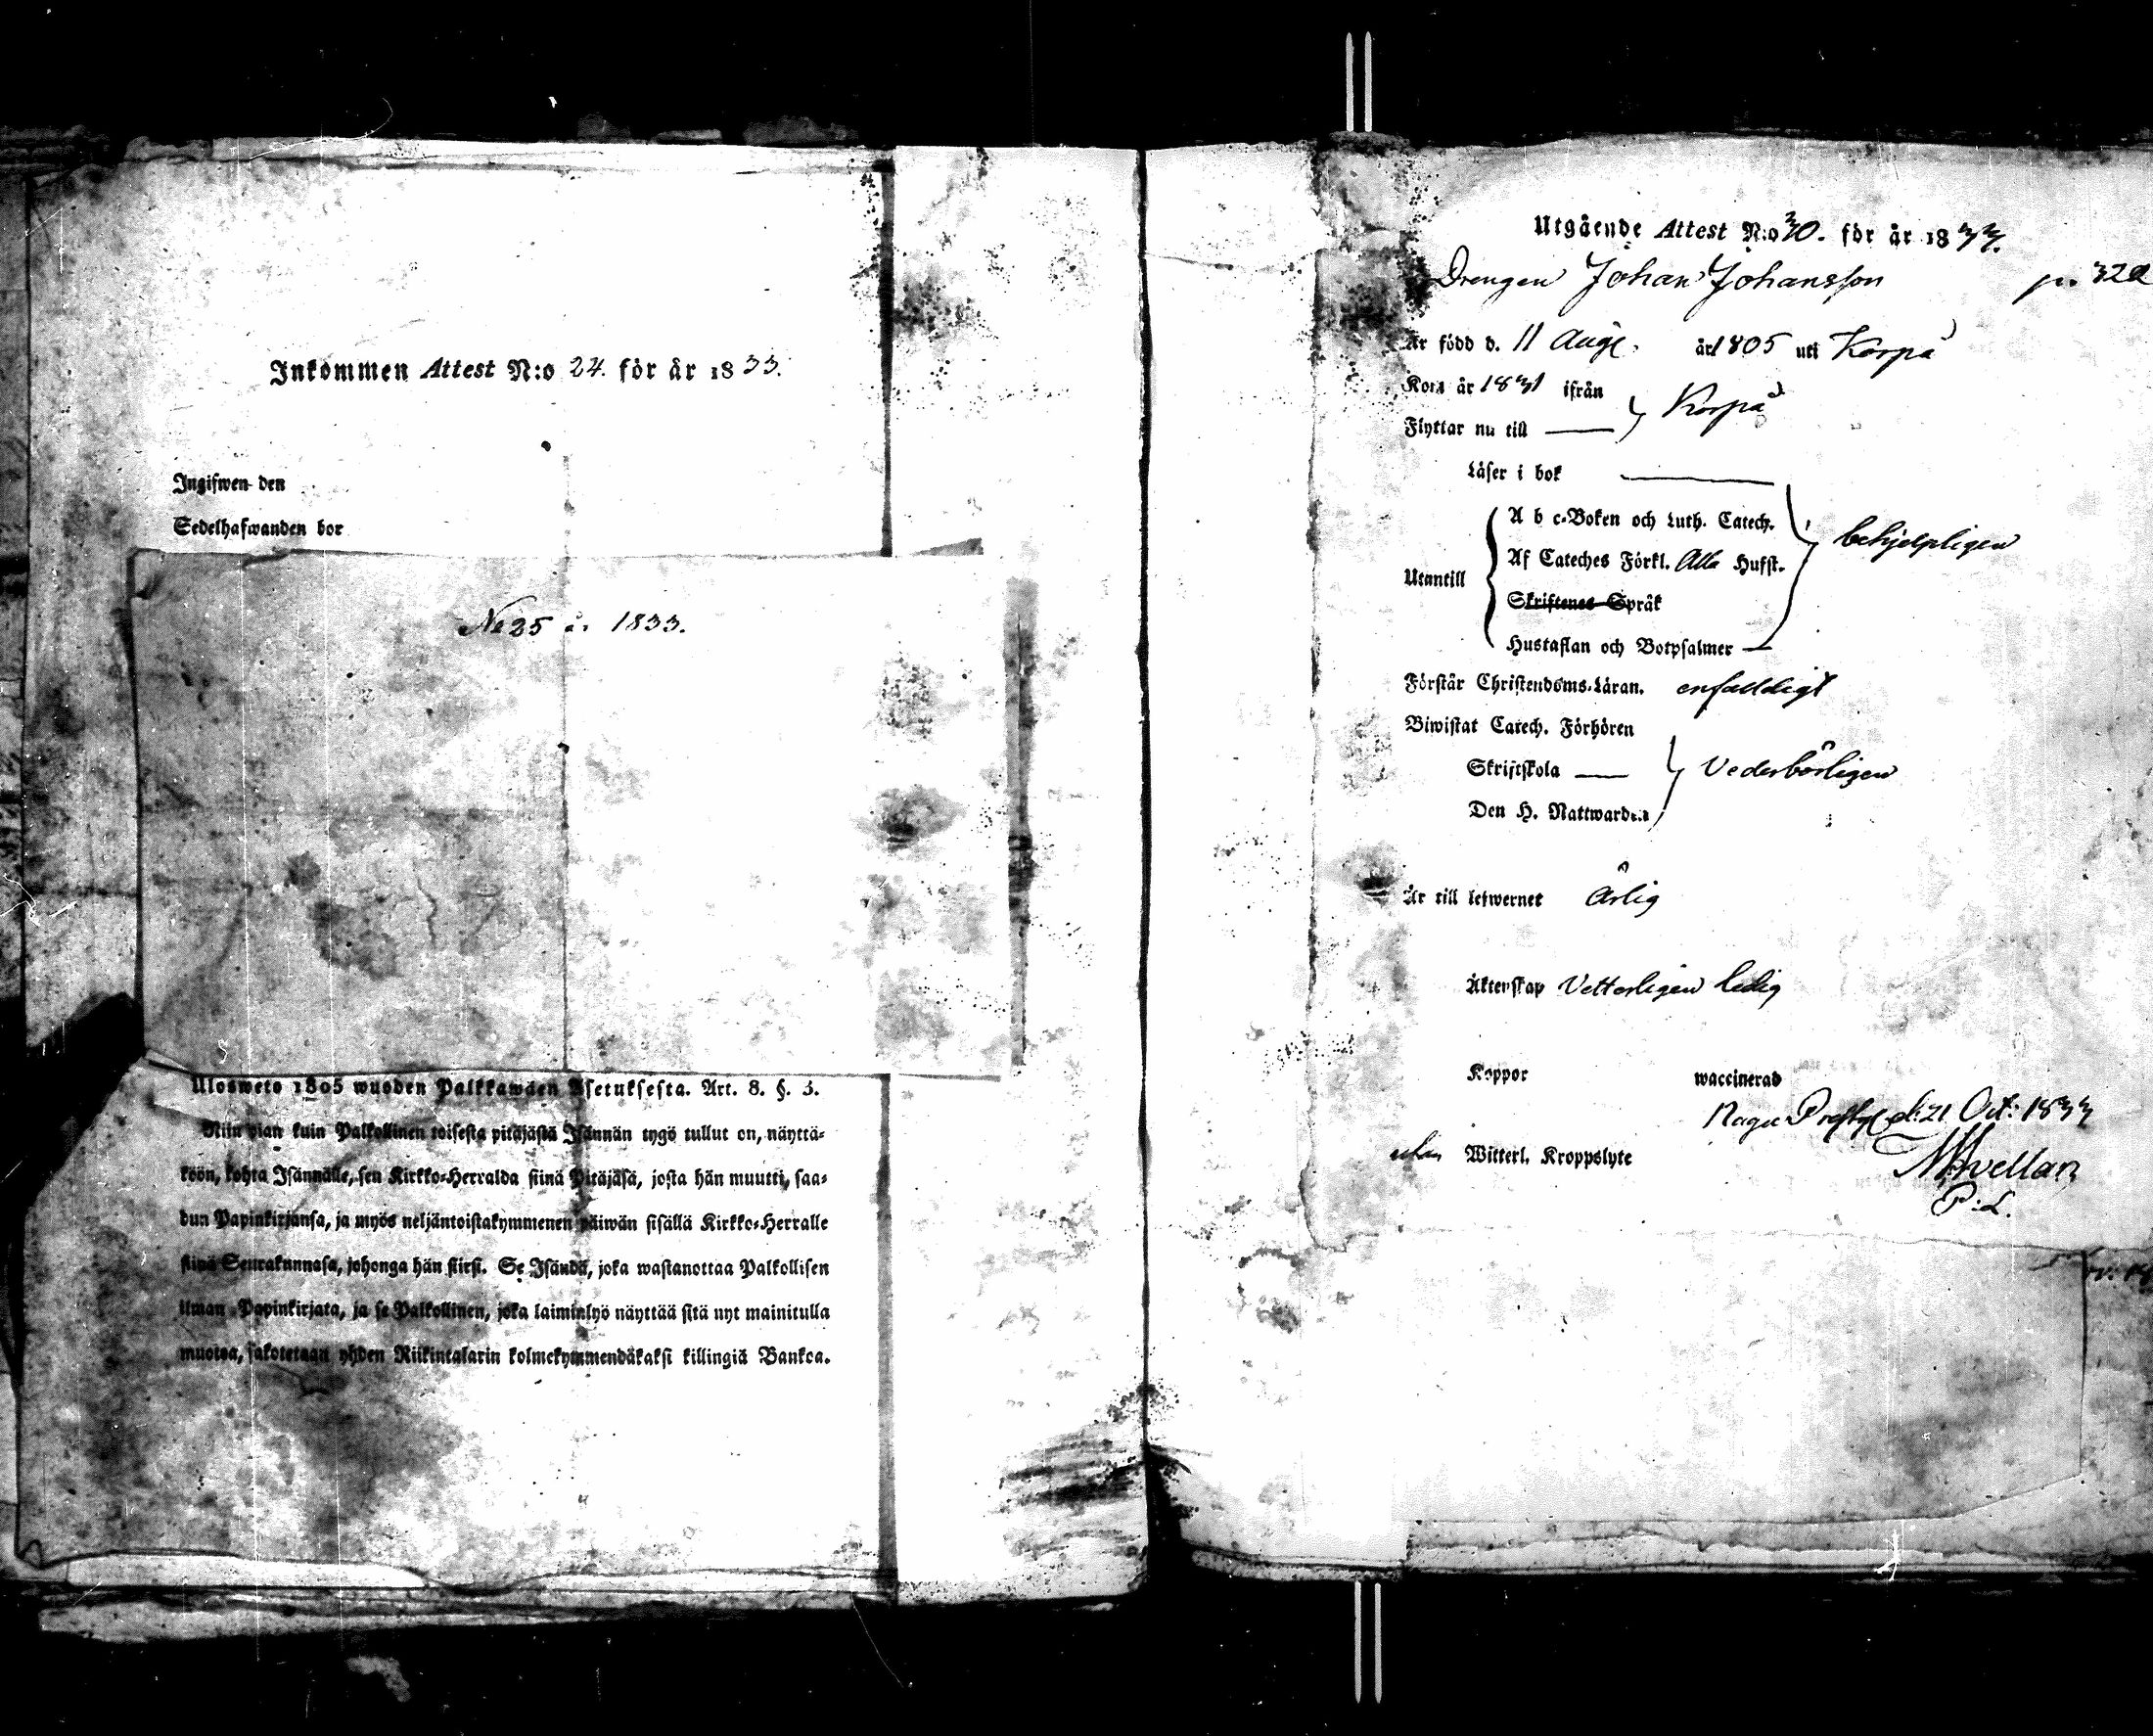 Inkommen Attest N:o 24. för år 1833.
Ingifwen den
Sedelhafwanden bor
No 25 år 1833.
Ulosweto 1805 wuoden Palkkawäen Asetuksesta. Art. 8. §. 3.
Niin pian kuin Palkollinen toisesta pitäjästä Isännän tygö tullut on, näyttä-
köön, kohta Isännälle, sen Kirkko-Herralda siinä Pitäjäsä, josta hän muutti, saa-
dun Papinkirjansa, ja myös neljäntoistakymmenen päiwän sisällä Kirkko-Herralle
siinä Seurakunnasa, johonga hän siirsi. Se Isändä, joka wastanottaa Palkollisen
ilman Papinkirjata, ja se Palkollinen, joka laiminlyö näyttää sitä nyt mainitulla
muotoa, sakotetaan yhden Riikintalarin kolmekymmendäkaksi killingiä Bankoa.
Utgående Attest N:o 30. för år 1833.
Drengen Johan Johansson p. 322
Är född d. 11 Aug. år 1805 uti Korpå
Kom år 1831 ifrån
Flyttar nu till Korpå
Läser i bok
A b c-Boken och Luth. Catech. behjelpligen
Af Cateches Förkl. Alla Hufst.
Utantill
Skriftenes Språk
Hustaflan och Botpsalmer
Förstår Christendoms-Läran. enfaldigt
Biwistat Catech. Förhören
Skriftskola Vederbörligen
Den H. Nattwarden
Är till lefwernet ärlig
Äktenskap Vetterligen ledig
Koppor waccinerad
Nagu Prestg. d. 21 Oct: 1833
utan Witterl. Kroppslyte
Avellan
P. L.